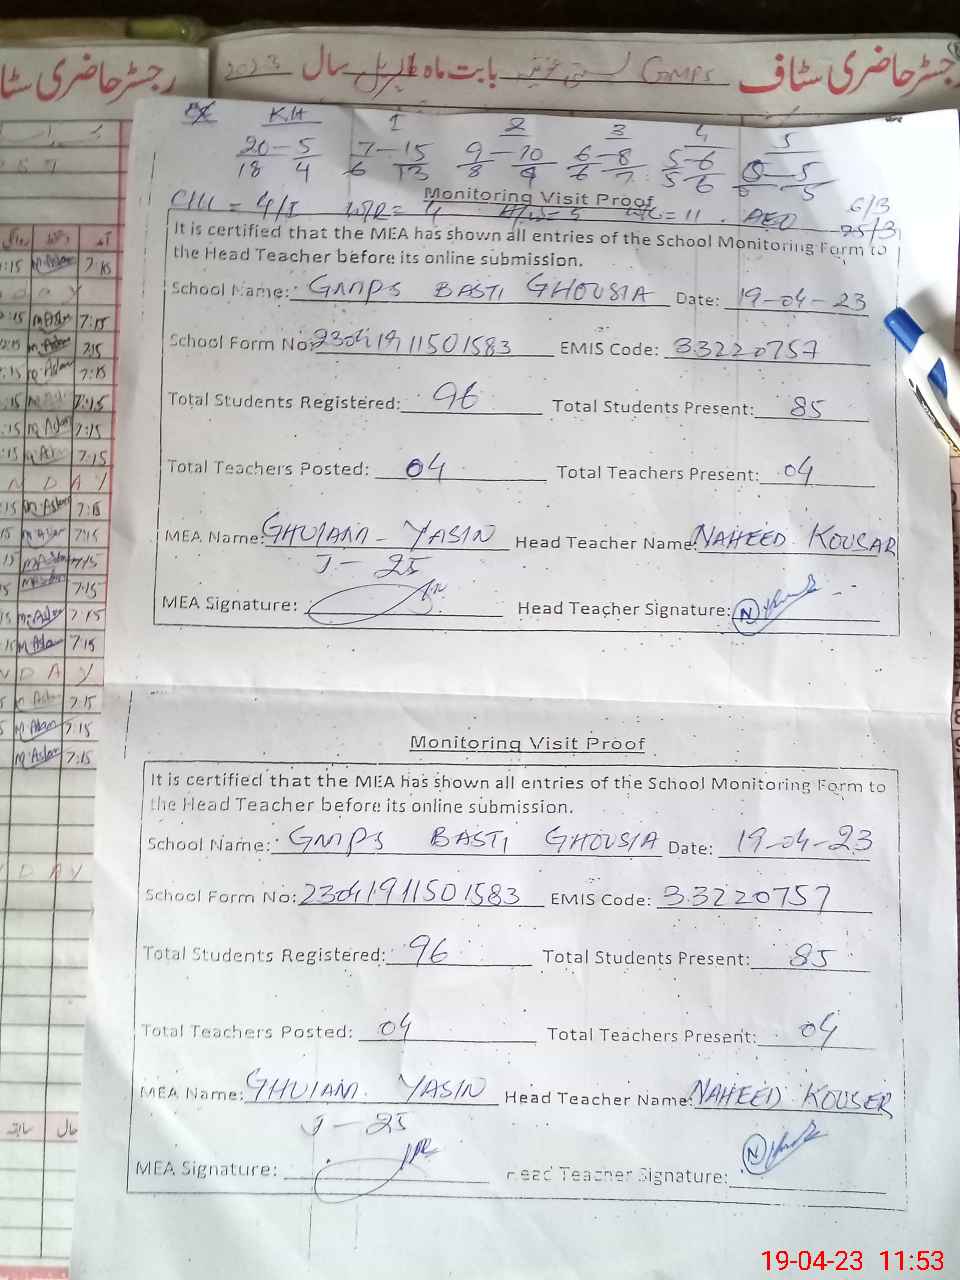 رجسٹر حاضری سٹاف GMPS بابت ماہ اپریل سال 2023
K.H 1 2 3 4 5
20-5 7-15 9-10 6-8 5-6 0-5
18 4 6 13 8 9 6 7 5 6 0 5
Monitoring Visit Proof
6/3
CHI = 4/I W/R= 4 = 5 = 11 . AEO 25/3
It is certified that the MEA has shown all entries of the School Monitoring Form to
the Head Teacher before its online submission.
School Name: GMPS BASTI GHOUSIA Date: 19-04-23
School Form No: 23041911501583 EMIS Code: 33220757
Total Students Registered: 96 Total Students Present: 85
Total Teachers Posted: 04 Total Teachers Present: 04
MEA Name: GHULAM - YASIN Head Teacher Name: NAHEED KOUSAR
J - 25
MEA Signature: Head Teacher Signature: N
Monitoring Visit Proof
It is certified that the MEA has shown all entries of the School Monitoring Form to
the Head Teacher before its online submission.
School Name: GMPS BASTI GHOUSIA Date: 19-04-23
School Form No: 23041911501583 EMIS Code: 33220757
Total Students Registered: 96 Total Students Present: 85
Total Teachers Posted: 04 Total Teachers Present: 04
MEA Name: GHULAM YASIN Head Teacher Name: NAHEED KOUSER
J - 25
MEA Signature: Head Teacher Signature: N
19-04-23 11:53